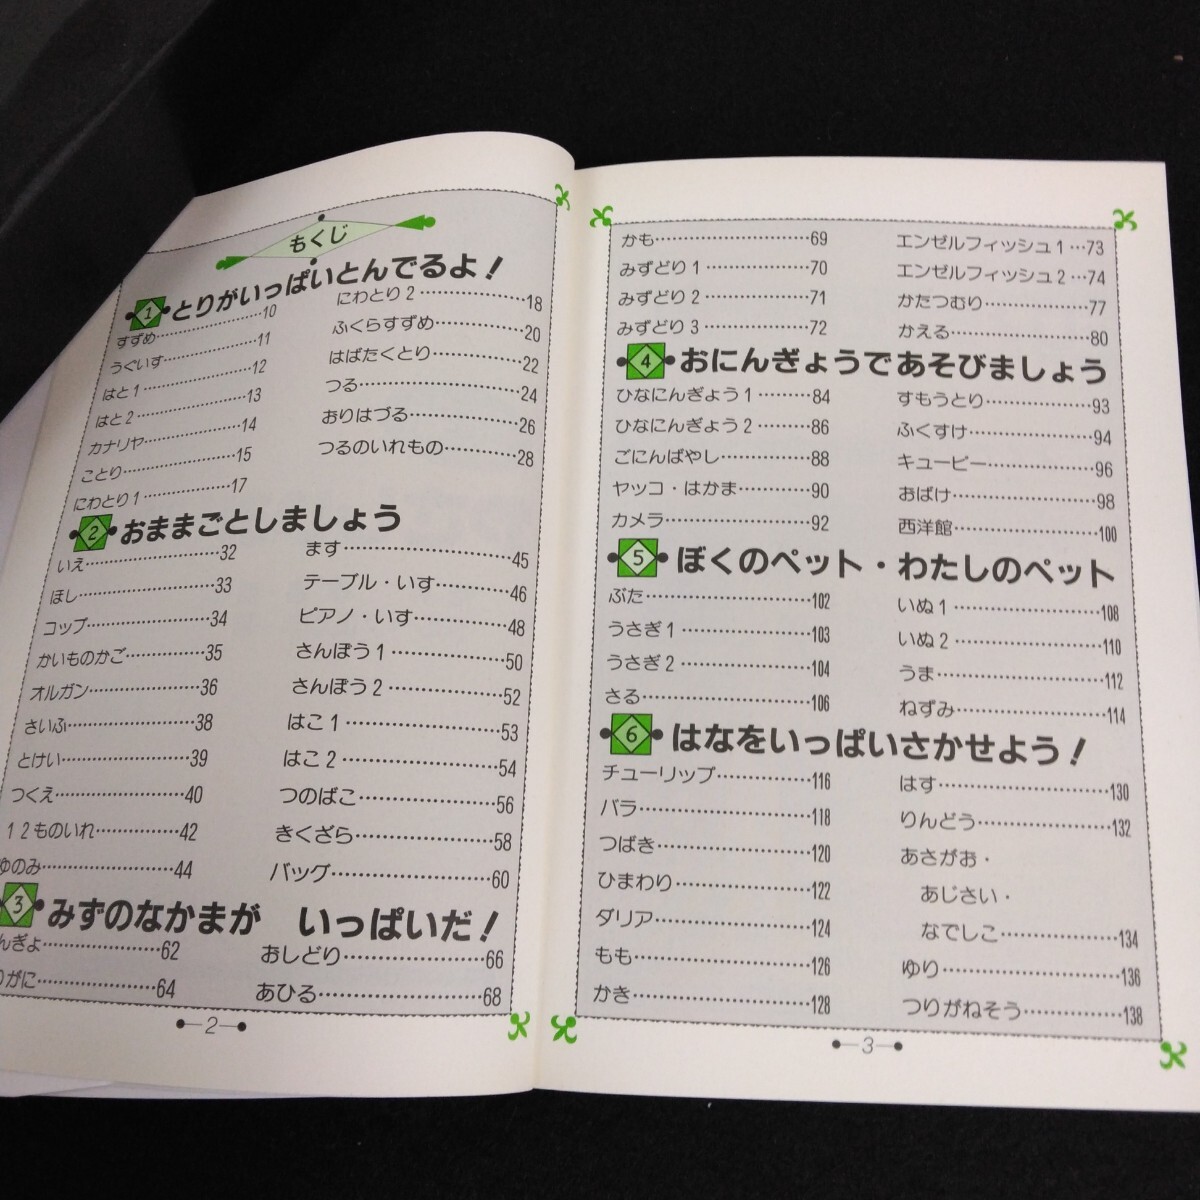 もくじ
1 とりがいっぱいとんでるよ!
すずめ……………10
うぐいす……………11
はと1……………12
はと2……………13
カナリヤ……………14
ことり……………15
にわとり1……………17
にわとり2……………18
ふくらすずめ……………20
はばたくとり……………22
つる……………24
おりはづる……………26
つるのいれもの……………28
2 おままごとしましょう
いえ……………32
ほし……………33
コップ……………34
かいものかご……………35
オルガン……………36
さいふ……………38
とけい……………39
つくえ……………40
12ものいれ……………42
ゆのみ……………44
ます……………45
テーブル・いす……………46
ピアノ・いす……………48
さんぼう1……………50
さんぼう2……………52
はこ1……………53
はこ2……………54
つのばこ……………56
きくざら……………58
バッグ……………60
3 みずのなかまが いっぱいだ!
んぎょ……………62
りがに……………64
おしどり……………66
あひる……………68
2
かも……………69
みずどり1……………70
みずどり2……………71
みずどり3……………72
エンゼルフィッシュ1…73
エンゼルフィッシュ2…74
かたつむり……………77
かえる……………80
4 おにんぎょうであそびましょう
ひなにんぎょう1………84
ひなにんぎょう2………86
ごにんばやし……………88
ヤッコ・はかま…………90
カメラ……………92
すもうとり……………93
ふくすけ……………94
キューピー……………96
おばけ……………98
西洋館……………100
5 ぼくのペット・わたしのペット
ぶた……………102
うさぎ1……………103
うさぎ2……………104
さる……………106
いぬ1……………108
いぬ2……………110
うま……………112
ねずみ……………114
6 はなをいっぱいさかせよう!
チューリップ……………116
バラ……………118
つばき……………120
ひまわり……………122
ダリア……………124
もも……………126
かき……………128
はす……………130
りんどう……………132
あさがお・
あじさい・
なでしこ……………134
ゆり……………136
つりがねそう……………138
3